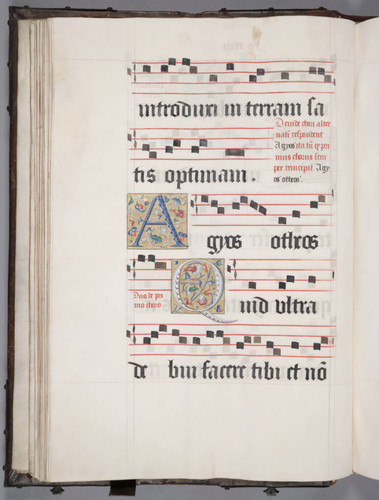 introduxi in terram sa
Deinde chori alter
nati respondent
Agyos ita tn̄ q̄ pri
mus chorus sem
per reincipit Agy
os otheos.
tis optimam.
Agyos otheos
Quid vltra
Duo de pri
mo choro
de bui facere tibi et nō